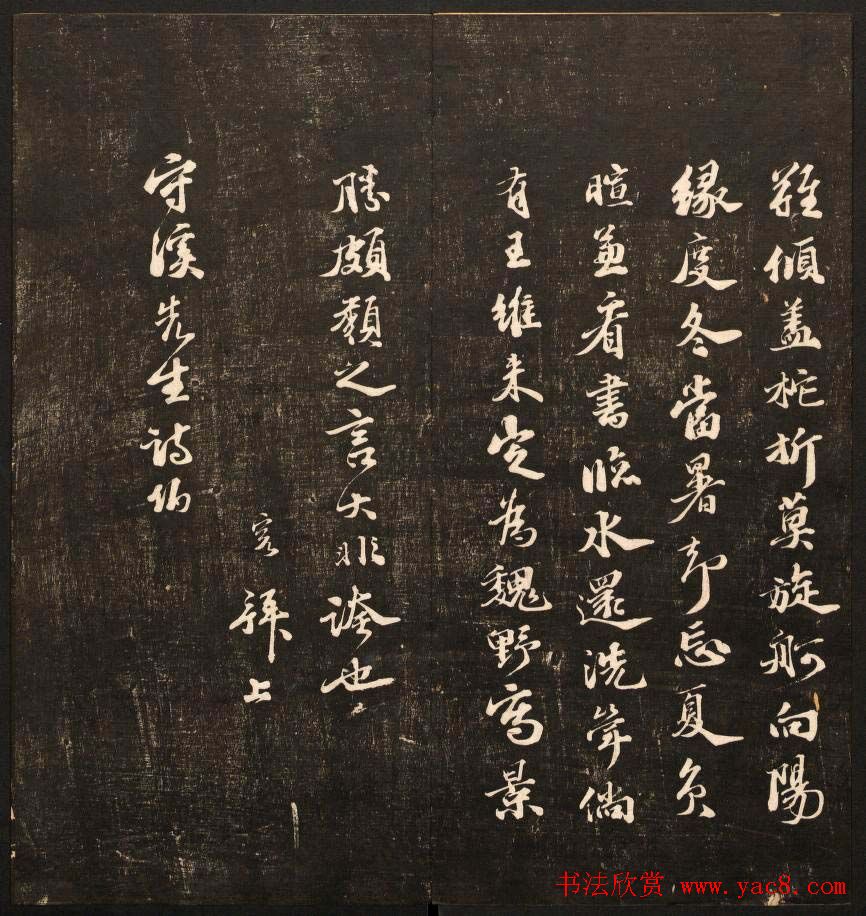 難傾蓋柁折莫旋舸向陽
緣度冬當暑却忘夏負
暄兼看書臨水還洗斝倘
有王維来定為魏野寫景
勝頗類之言大非誇也
寬拜上
守溪先生詩伯
书法欣赏 www.yac8.com